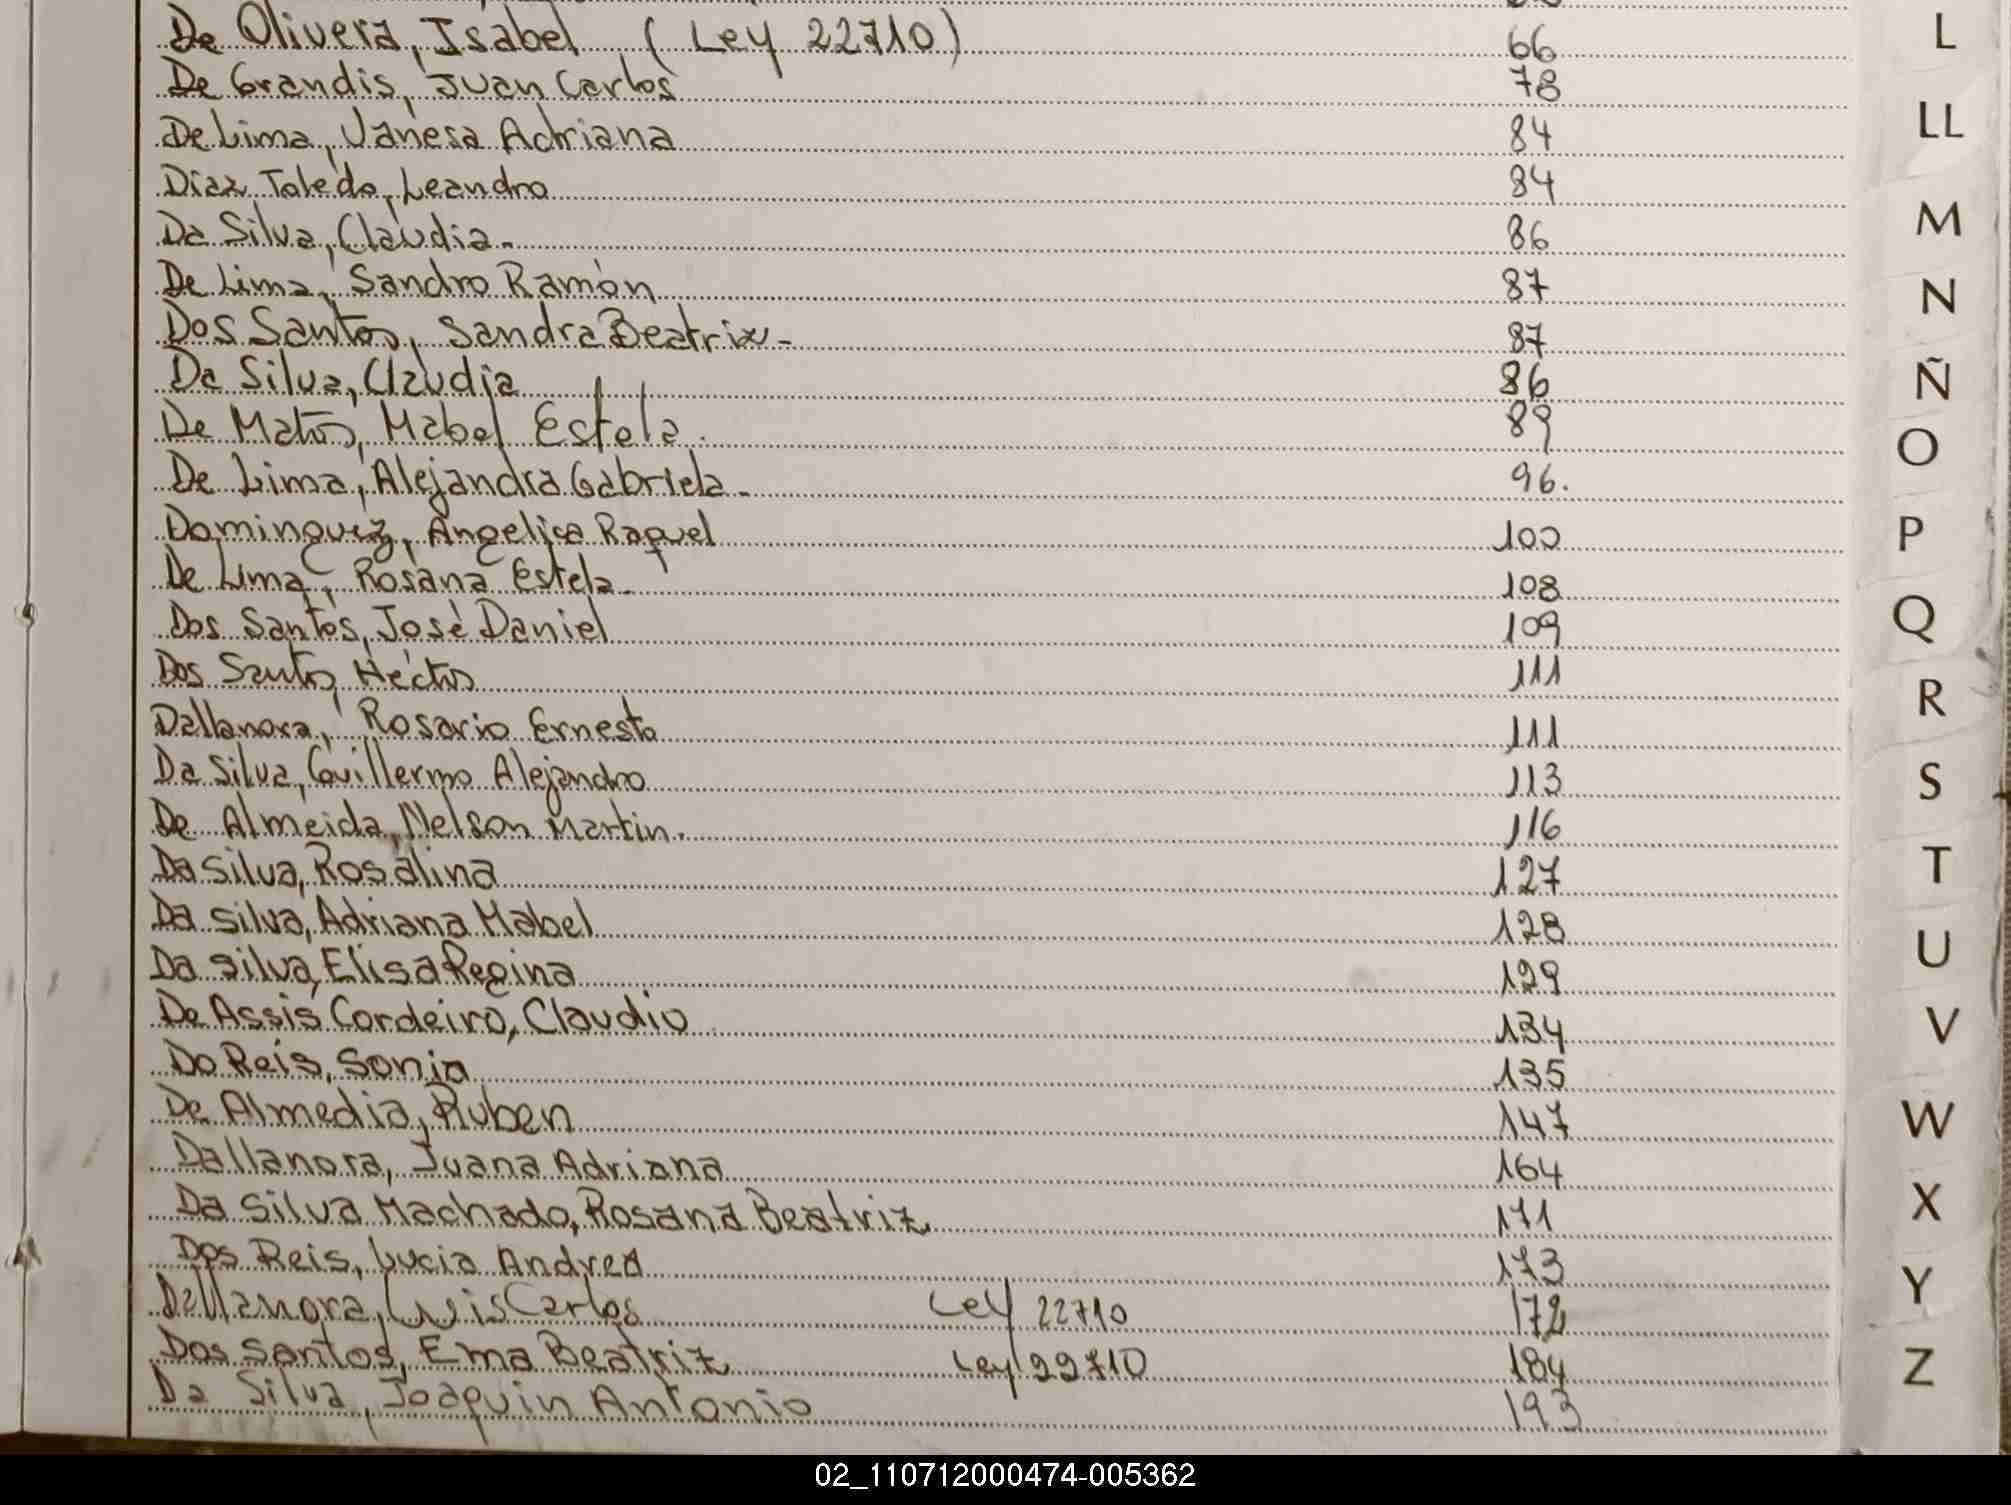 De Olivera, Isabel (Ley 22710) 66
De Grandis, Juan Carlos 78
De Lima, Vanesa Adriana 84
Diaz Toledo, Leandro 84
Da Silva, Claudia- 86
De Lima, Sandro Ramón 87
Dos Santos, Sandra Beatriz- 87
Da Silva, Claudia 86
De Matos, Mabel Estela. 89
De Lima, Alejandra Gabriela- 96.
Dominguez, Angelica Raquel 100
De Lima, Rosana Estela- 108
Dos Santos, José Daniel 109
Dos Santos, Héctor 111
Dallanora, Rosario Ernesto 111
Da Silva, Guillermo Alejandro 113
De Almeida, Nelson Martin. 116
Da Silva, Rosalina 127
Da Silva, Adriana Mabel 128
Da Silva, Elisa Regina 129
De Assis Cordeiro, Claudio 134
Do Reis, Sonia 135
De Almedia, Ruben 147
Dallanora, Juana Adriana 164
Da Silva Machado, Rosana Beatriz 171
Dos Reis, Lucia Andrea 173
Dallanora, Luis Carlos Ley 22710 172
Dos Santos, Ema Beatriz Ley 22710 184
Da Silva, Joaquin Antonio 193
L
LL
M
N
Ñ
O
P
Q
R
S
T
U
V
W
X
Y
Z
02_110712000474-005362